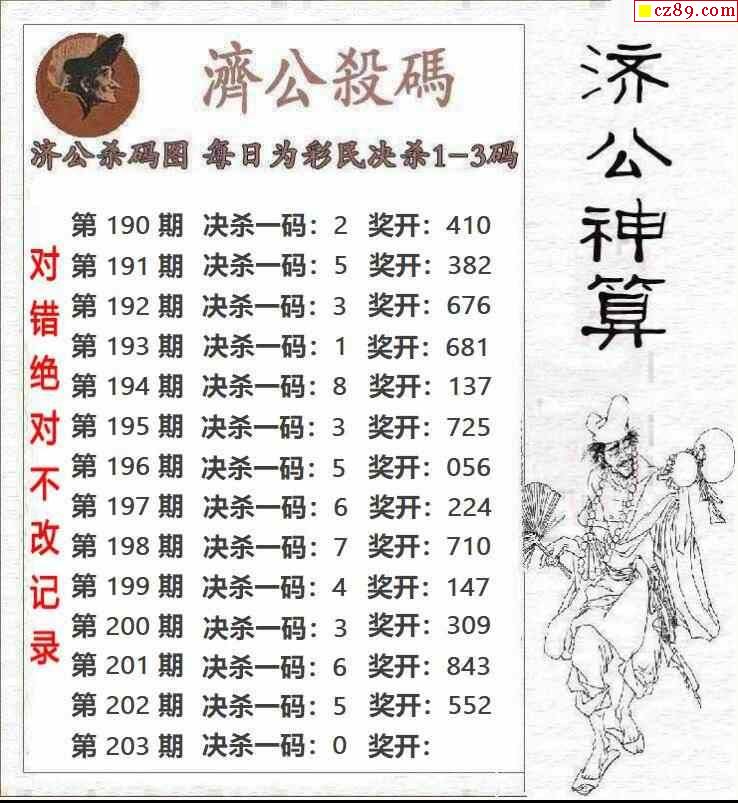 cz89.com
濟公殺碼
济公杀码图 每日为彩民决杀1-3码
第 190 期 决杀一码：2 奖开：410
第 191 期 决杀一码：5 奖开：382
第 192 期 决杀一码：3 奖开：676
第 193 期 决杀一码：1 奖开：681
第 194 期 决杀一码：8 奖开：137
第 195 期 决杀一码：3 奖开：725
第 196 期 决杀一码：5 奖开：056
第 197 期 决杀一码：6 奖开：224
第 198 期 决杀一码：7 奖开：710
第 199 期 决杀一码：4 奖开：147
第 200 期 决杀一码：3 奖开：309
第 201 期 决杀一码：6 奖开：843
第 202 期 决杀一码：5 奖开：552
第 203 期 决杀一码：0 奖开：
对错绝对不改记录
济公神算